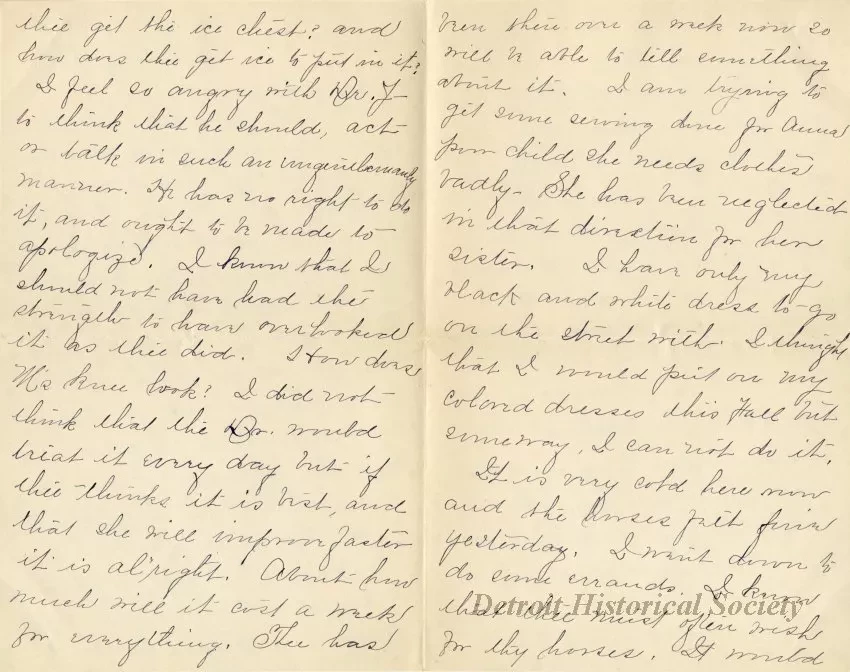 thee get the ice chest? and
how does thee get ice to put in it?
I feel so angry with Dr. J
to think that he should, act
or talk in such an ungentlemanly
manner. He has no right to do
it, and ought to be made to
apologize. I know that I
should not have had the
strength to have overlooked
it as thee did. How does
M's knee look? I did not
think that the Dr. would
treat it every day but if
thee thinks it is best, and
that she will improve faster
it is al'right. About how
much will it cost a week
for everything. Thee has
been there over a week now so
will be able to tell something
about it. I am trying to
get some sewing done for Anna
poor child she needs clothes
badly - She has been neglected
in that direction for her
sister. I have only my
black and white dress to go
on the street with. I thought
that I would put on my
colored dresses this Fall but
someway, I can not do it.
It is very cold here now
and the horses felt fine
yesterday. I went down to
do some errands. I know
that thee must often wish
for thy horses. It would
Detroit Historical Society